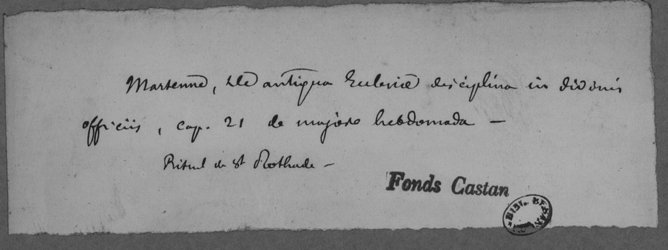 Martenne, De antiqua Ecclesiæ disciplina in divinis
officiis, cap. 21 de majore hebdomada —
Rituel de St Prothade —
Fonds Castan